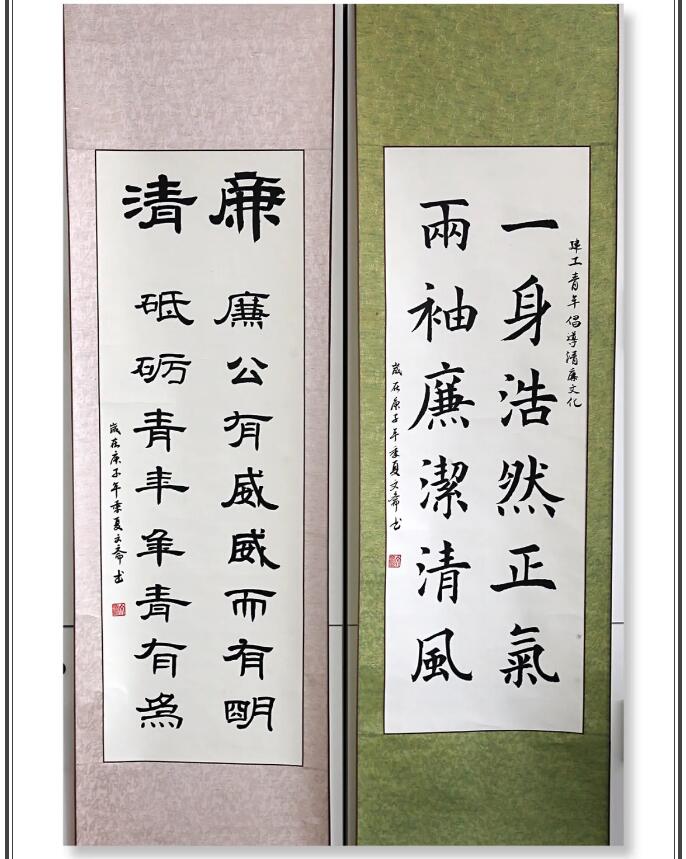 埠工青年倡導清廉文化
一身浩然正氣
兩袖廉潔清風
歲在庚子年季夏文斋书
廉清
廉公有威威而有明
砥砺青年年青有為
歲在庚子年季夏文斋书